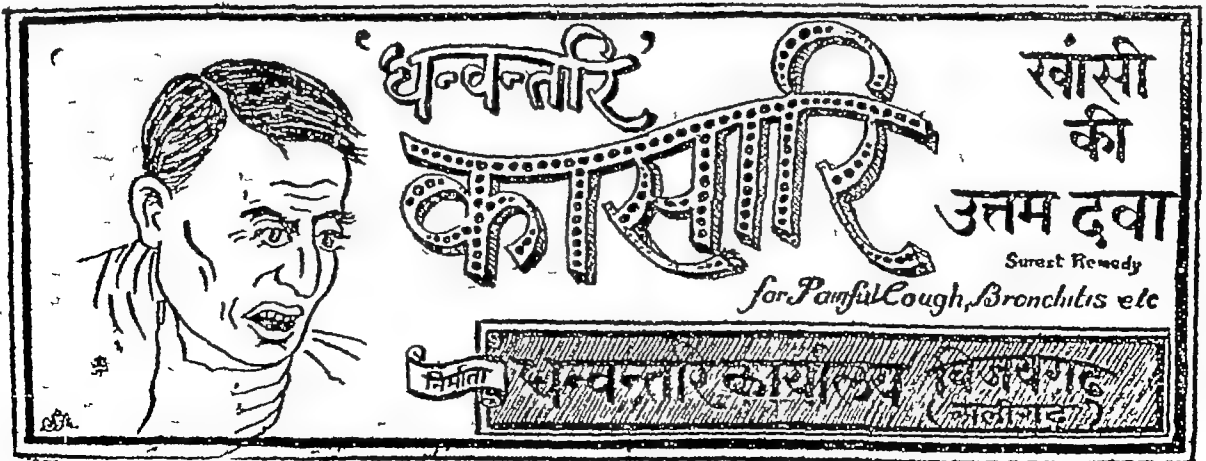 'धन्वन्तरि'
कासारि
खांसी
की
उत्तम दवा
Surest Remedy
for Painful Cough, Bronchitis etc
निर्माता
धन्वन्तरि कार्यालय
विजयगढ़